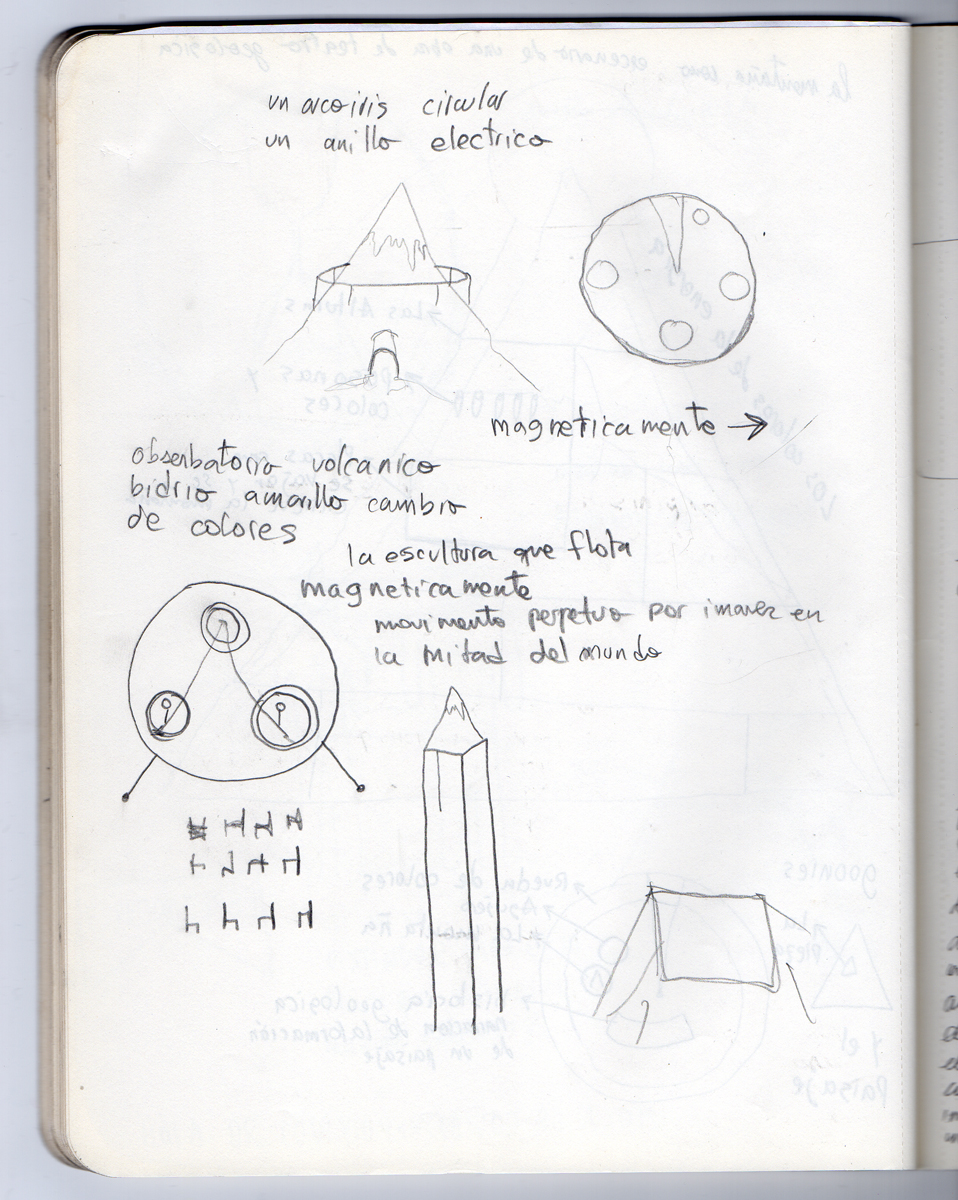 un arcoiris circular
un anillo electrico
magneticamente →
obserbatorio volcanico
bidrio amarillo cambio
de colores
la escultura que flota
magneticamente
movimiento perpetuo por imanez en
la mitad del mundo